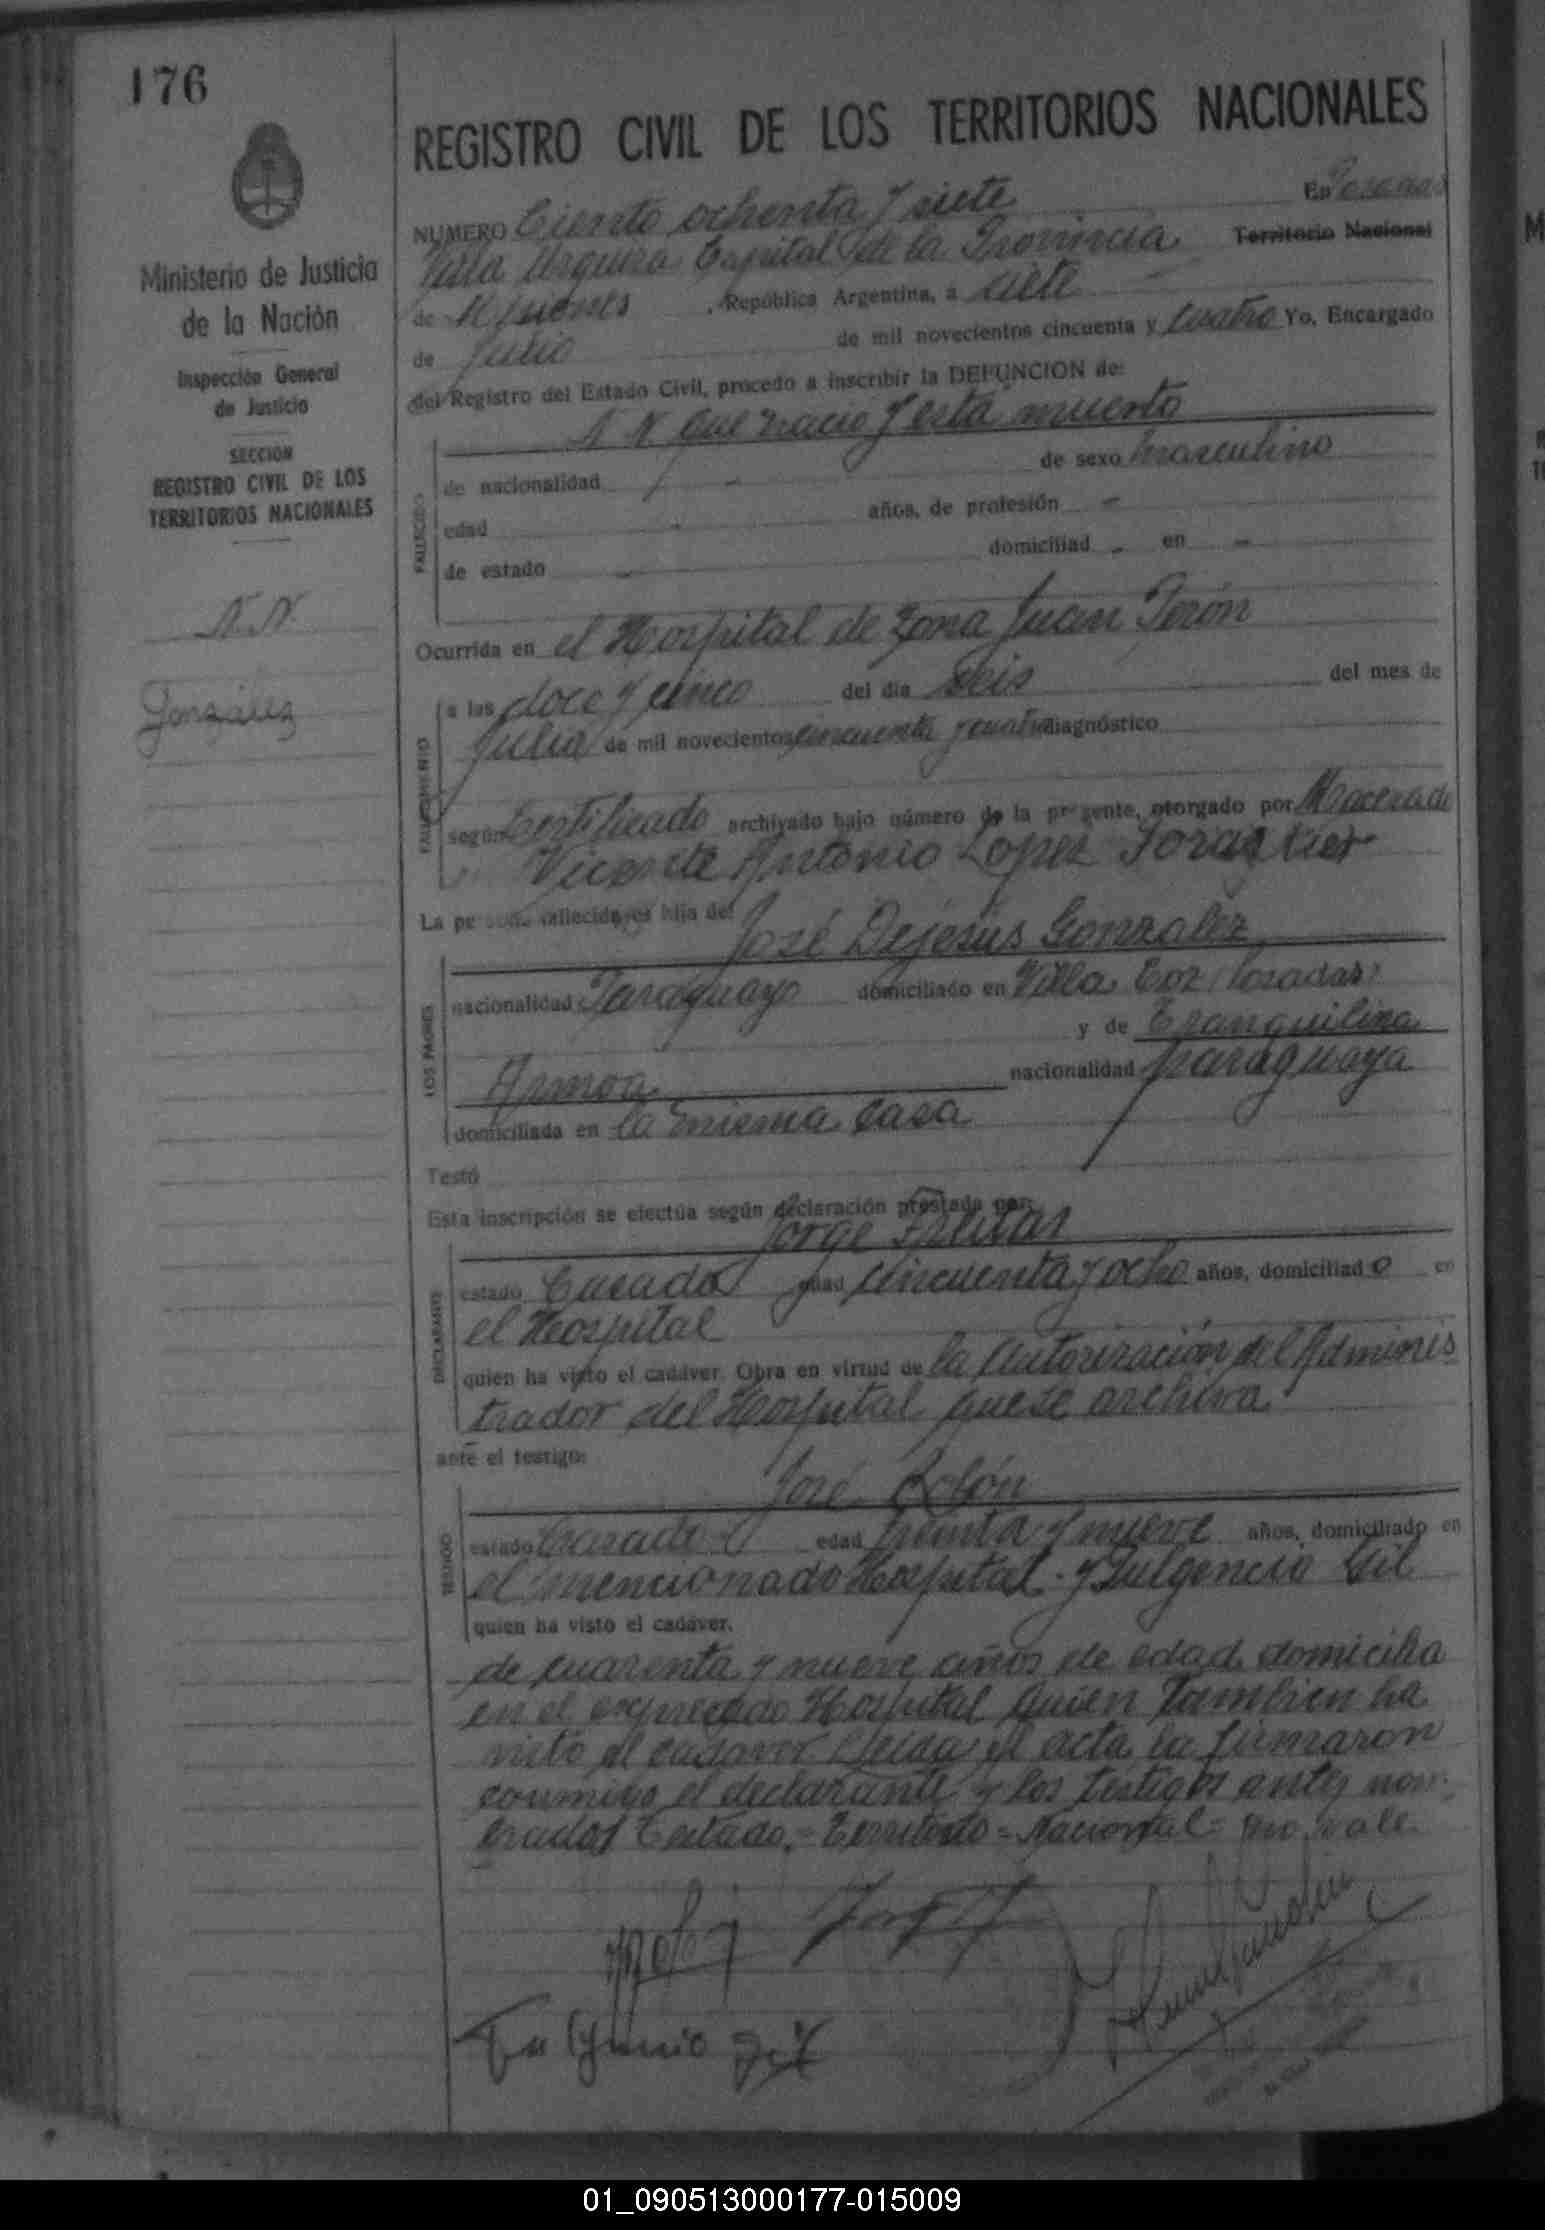 176
REGISTRO CIVIL DE LOS TERRITORIOS NACIONALES
Ministerio de Justicia
de la Nación
Inspección General
de Justicia
SECCION
REGISTRO CIVIL DE LOS
TERRITORIOS NACIONALES
N.N.
González
NUMERO Ciento ochenta y siete En Posadas
Villa Urquiza Capital de la Provincia Territorio Nacional
de Misiones , República Argentina, a siete
de Julio de mil novecientos cincuenta y cuatro Yo, Encargado
del Registro del Estado Civil, procedo a inscribir la DEFUNCION de:
N N que nació y está muerto
FALLECIDO
de nacionalidad - de sexo masculino
edad - años, de profesión -
de estado - domiciliad - en -
Ocurrida en el Hospital de Zona Juan Perón
FALLECIMIENTO
a las doce y cinco del día seis del mes de
Julio de mil novecientos cincuenta y cuatro diagnóstico
según Certificado archivado bajo número de la presente, otorgado por Macerado
Vicente Antonio Lopez
La persona fallecida es hija de:
José Dejesús Gonzalez
LOS PADRES
nacionalidad Paraguayo domiciliado en Villa (Posadas)
y de Tranquilina
Armoa nacionalidad paraguaya
domiciliada en la misma casa
Testó
Esta inscripción se efectúa según declaración prestada por:
Jorge Freitas
DECLARANTE
estado Casado edad cincuenta y ocho años, domiciliado en
el Hospital
quien ha visto el cadáver. Obra en virtud de la autorización del Adminis
trador del Hospital que se archiva
ante el testigo:
José Rolón
TESTIGO
estado Casado edad treinta y nueve años, domiciliado en
el mencionado Hospital - y Fulgencio Gil
quien ha visto el cadáver.
de cuarenta y nueve años de edad domicilia
en el expresado Hospital quien tambien ha
visto el cadaver Leída el acta la firmaron
conmigo el declarante y los testigos antes nom-
brados Testado = Territorio = Nacional = no vale
Fulgencio Gil
01_090513000177-015009